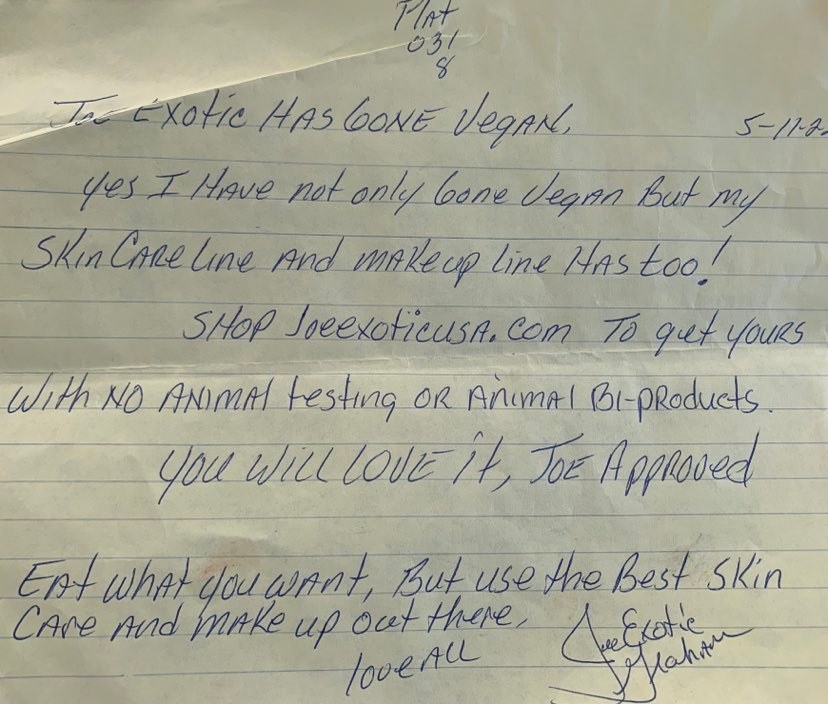 Mat
031
8
Joe Exotic HAS GONE Vegan.
5-11-2
yes I Have not only Gone Vegan But my
Skin Care line And makeup line Has too!
SHOP Joeexoticusa.com To get yours
With NO ANIMAl testing OR Animal Bi-products.
you will love it, Joe Approved
Eat what you want, But use the Best Skin
Care And make up out there.
love All
Joe Exotic
Graham